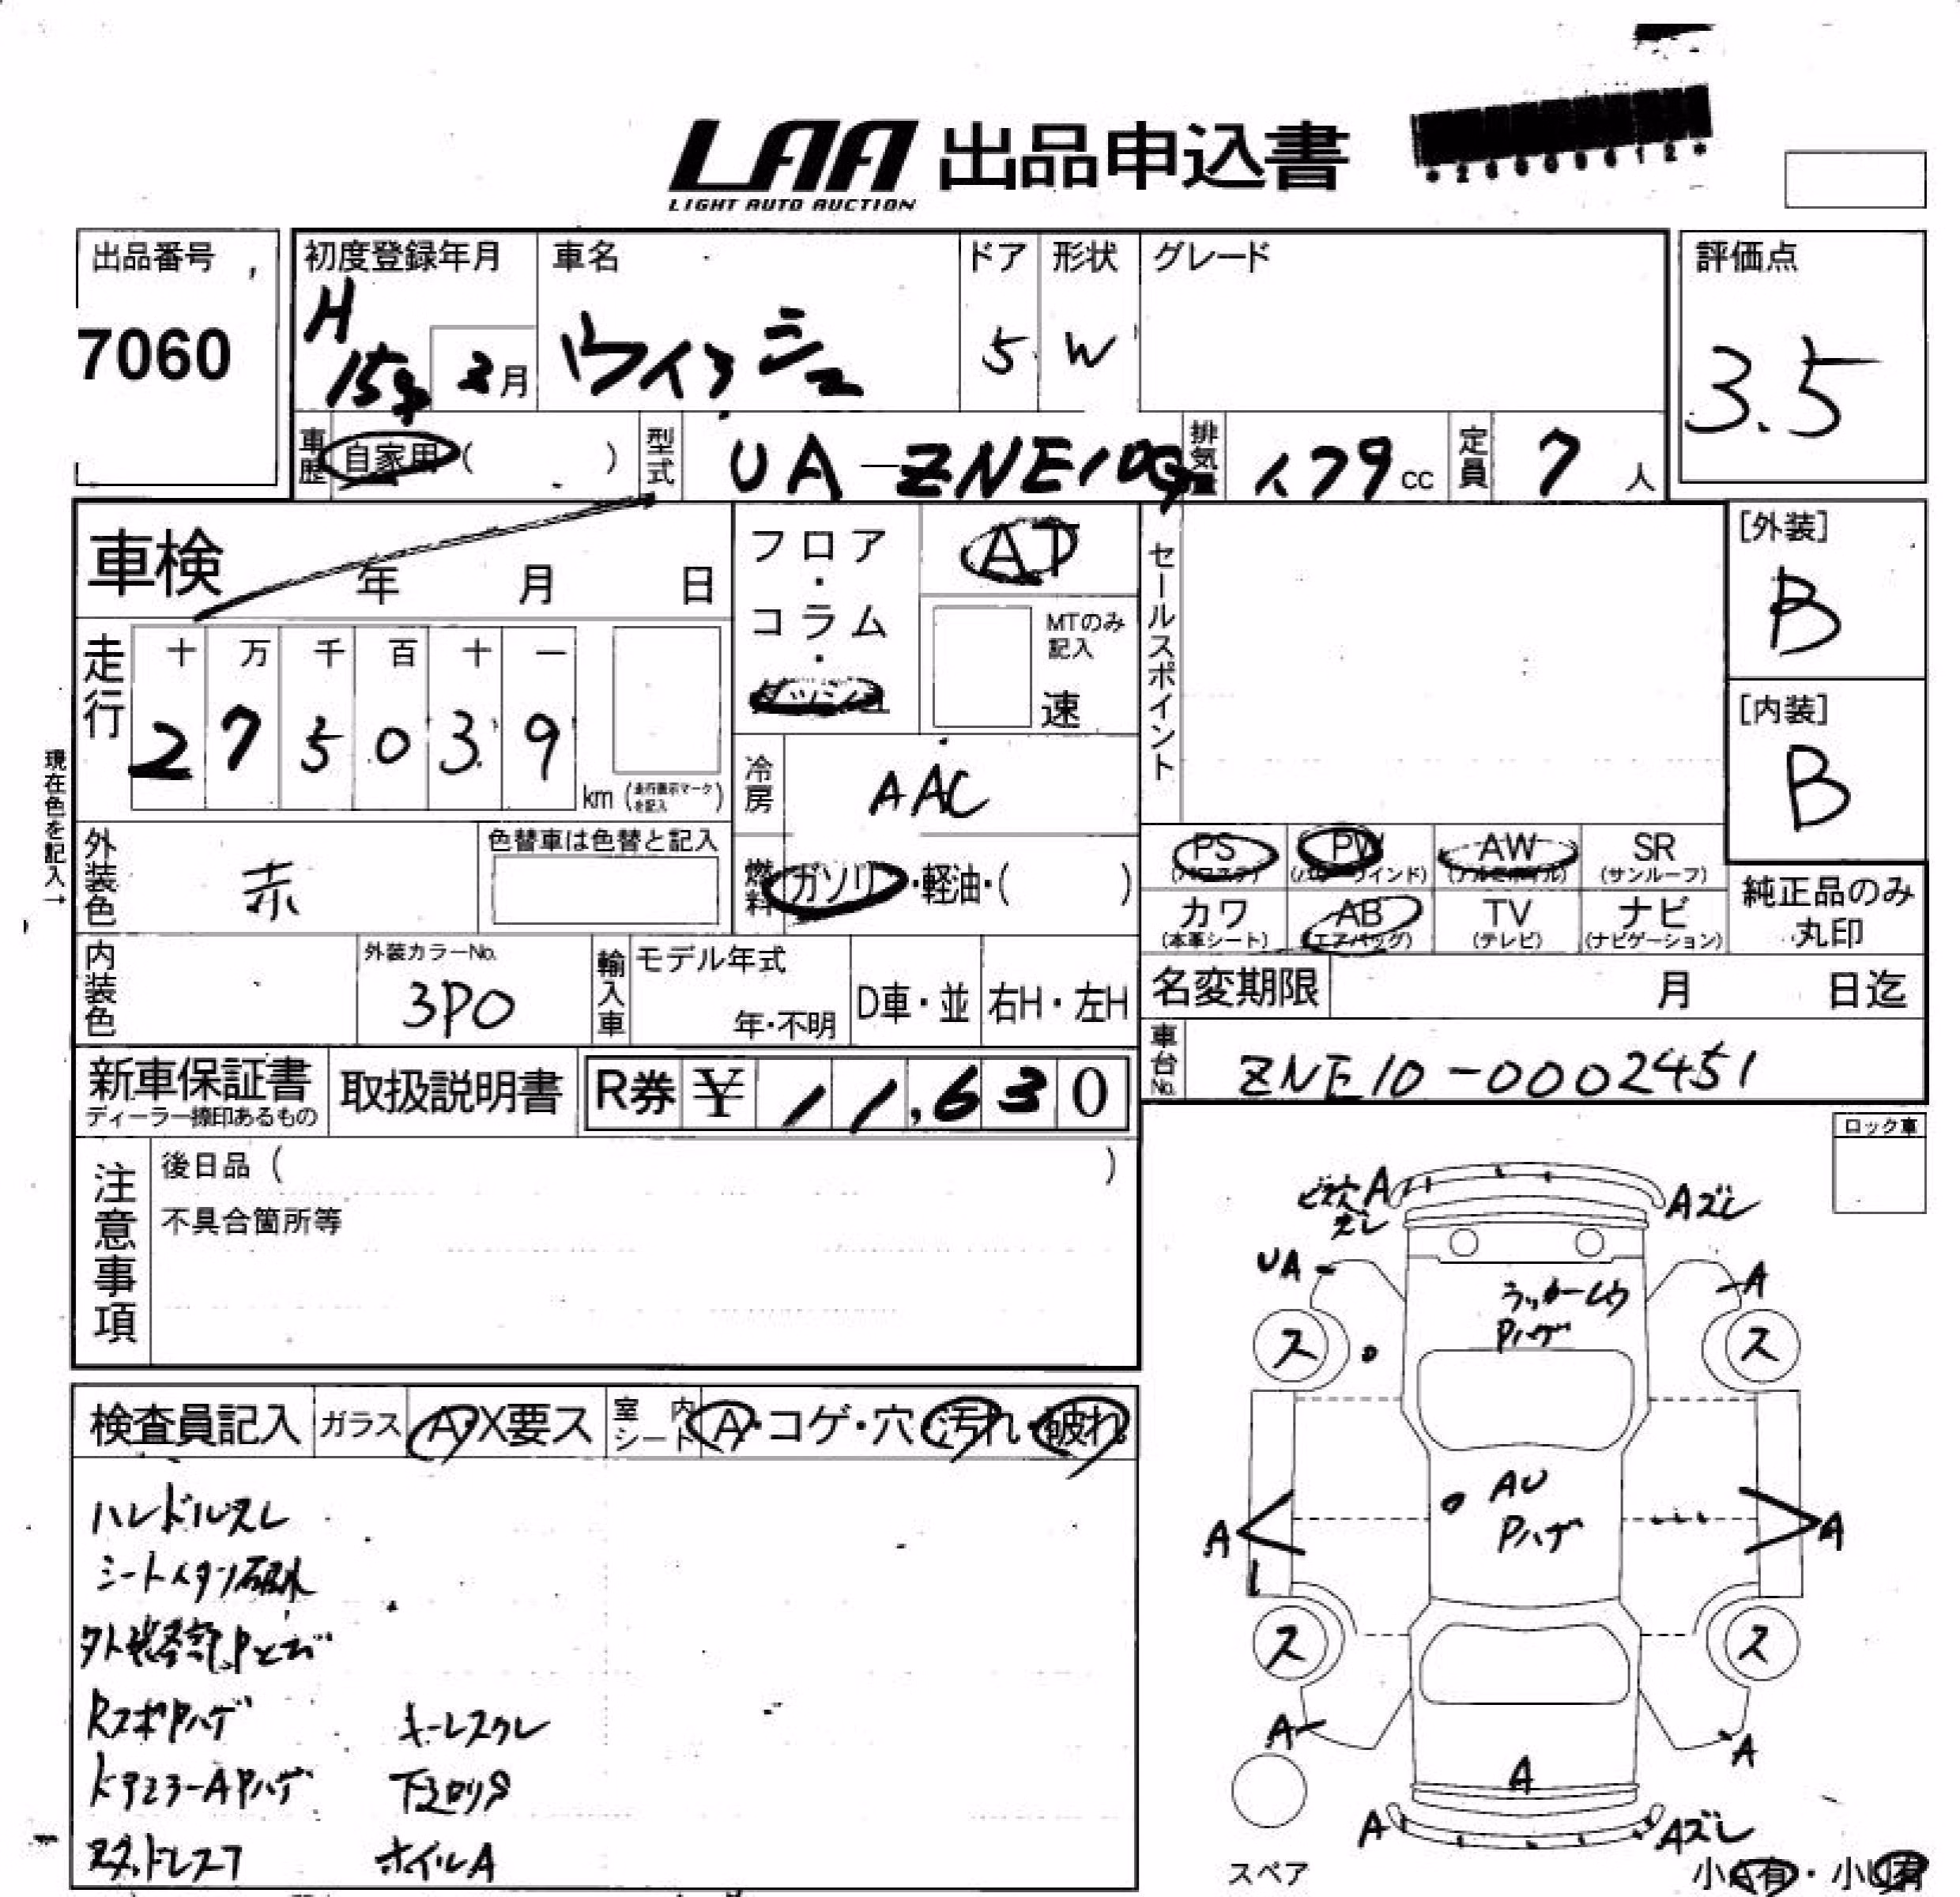 LAA 出品申込書
LIGHT AUTO AUCTION
出品番号
7060
初度登録年月
H
15年 2月
車名
ウイッシュ
ドア
5
形状
W
グレード
評価点
3.5
車歴 自家用 ( )
型式 UA-ZNE10G
排気量 179 cc
定員 7 人
車検 年 月 日
フロア・コラム・ダッシュ
AT
MTのみ記入
速
セールスポイント
[外装]
B
[内装]
B
走行
十 万 千 百 十 一
2 7 5 0 3 9
km (走行表示マークを記入)
現在色を記入→
外装色 赤
色替車は色替と記入
冷房 AAC
燃料 ガソリン・軽油・( )
PS (パワステ) PW (パワーウインド) AW (アルミホイル) SR (サンルーフ)
カワ (本革シート) AB (エアバッグ) TV (テレビ) ナビ (ナビゲーション)
純正品のみ
丸印
内装色
外装カラーNo.
3P0
輸入車 モデル年式
年・不明
D車・並 右H・左H
名変期限 月 日迄
車台No. ZNE10-0002451
新車保証書
ディーラー捺印あるもの
取扱説明書
R券 ¥ 11,630
注意事項
後日品 ( )
不具合箇所等
ロック車
検査員記入 ガラス A・X要ス 室内シート A・コゲ・穴・汚れ・破れ
ハンドルスレ
シートイタン破れ
外装各部Pとび
RスポPハゲ キーレスクレ
ドアミラーAPハゲ 下廻りS
スタッドレス7 ホイルA
ビス穴 A
ズレ
Aズレ
UA
A
ラッカームラ
Pハゲ
ス
ス
AU
Pハゲ
A
A
ス
ス
A
A
A
A
Aズレ
スペア
小A有・小U有